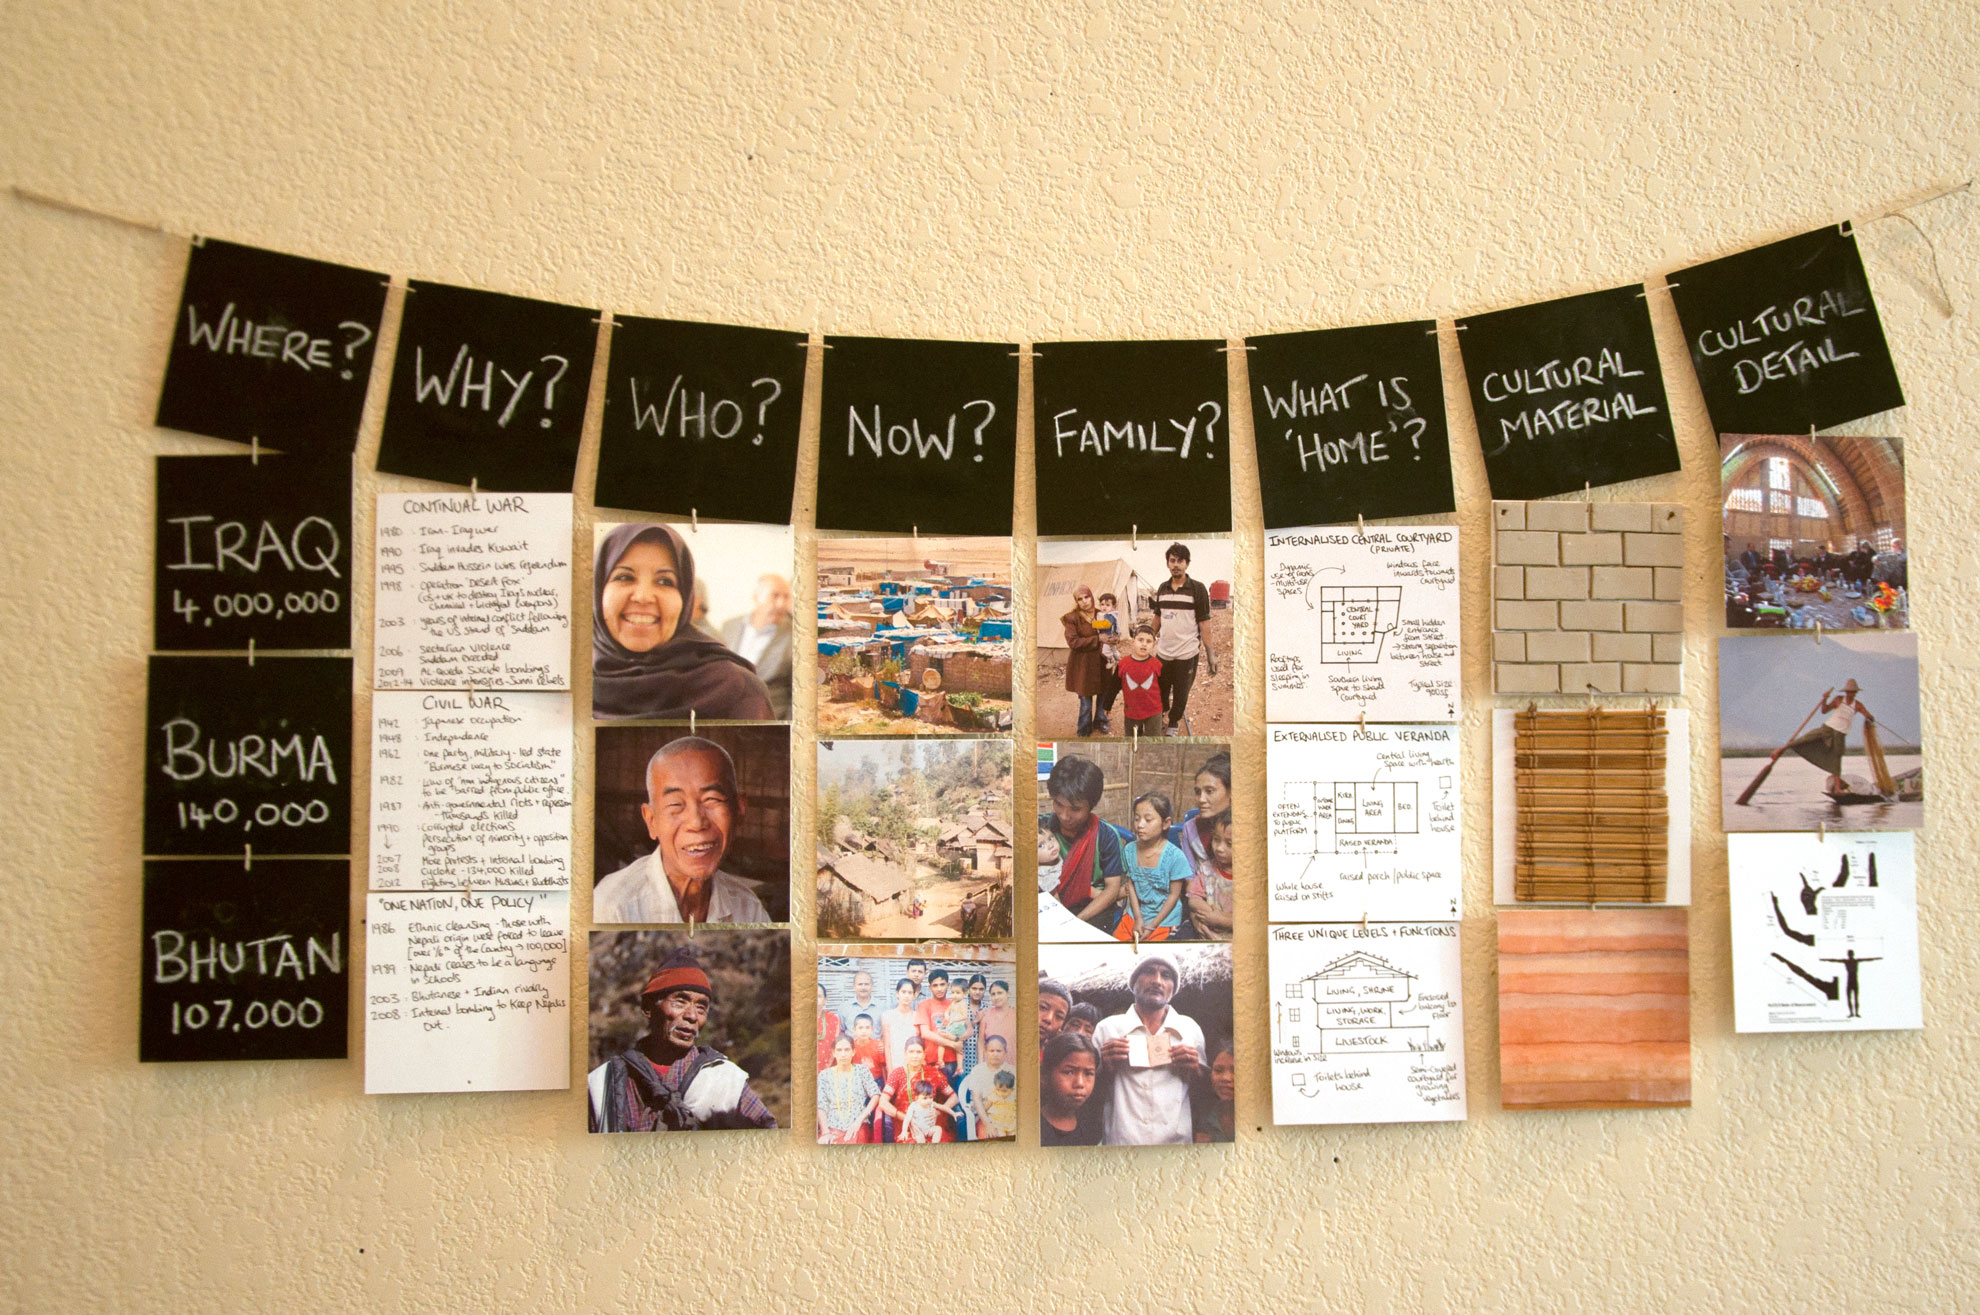 WHERE?
WHY?
WHO?
NOW?
FAMILY?
WHAT IS
'HOME'?
CULTURAL
MATERIAL
CULTURAL
DETAIL
IRAQ
4,000,000
BURMA
140,000
BHUTAN
107,000
CONTINUAL WAR
1980 : Iran-Iraq war
1990 : Iraq invades Kuwait
1995 : Saddam Hussein wins referendum
1998 : Operation 'Desert Fox'
(US + UK to destroy Iraq's nuclear,
chemical + biological weapons)
2003 : years of internal conflict following
the US stand of Saddam
2006 : Sectarian violence
Saddam executed
2009 : Al-Qaeda Suicide bombings
2012-14 Violence intensifies - Sunni rebels
CIVIL WAR
1942 : Japanese occupation
1948 : Independence
1962 : One party, military-led state
"Burmese way to Socialism"
1982 : Law of "non indigenous citizens"
to be "barred from public office"
1987 : Anti-governmental riots + repression
- thousands killed
1990 : Corrupted elections
Persecution of minority + opposition
groups
2007 More protests + internal bombing
2008 Cyclone - 134,000 killed
2012 Fighting between Muslims + Buddhists
"ONE NATION, ONE POLICY"
1986 Ethnic cleansing - those with
Nepali origin were forced to leave
[over 1/6th of the Country → 100,000]
1989 : Nepali ceases to be a language
in schools
2003 : Bhutanese + Indian rivalry
2008 : Internal bombing to keep Nepalis
out.
INTERNALISED CENTRAL COURTYARD
(PRIVATE)
Dynamic
use of rooms
- multi-use
spaces
windows face
inwards towards
courtyard
CENTRAL
COURT
YARD
LIVING
Small hidden
entrance
from street
→ strong separation
between house and
street
Rooftops
used for
sleeping in
summer
Southern living
space to shade
courtyard
Typical size:
N
EXTERNALISED PUBLIC VERANDA
Central living
space with hearth
OFTEN
EXTENDING
TO PUBLIC
PLATFORM
OUTSIDE
WASH
AREA
KITCH.
DINING
LIVING
AREA
BED.
Toilet
behind
house
RAISED VERANDA
Whole house
raised on stilts
Raised porch/public space
N
THREE UNIQUE LEVELS + FUNCTIONS
LIVING, SHRINE
LIVING, WORK,
STORAGE
LIVESTOCK
Enclosed
balcony 1st
floor
Windows
increase in size
Toilets behind
house
Semi-covered
courtyard for
growing
vegetables
N